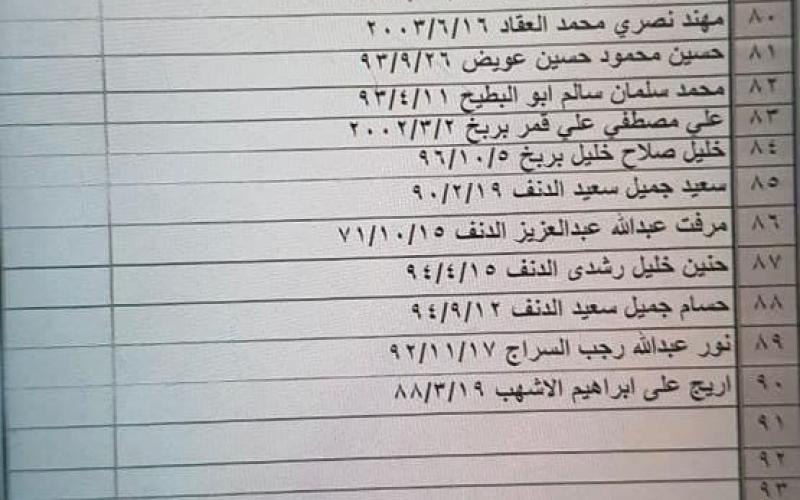 ٨٠ مهند نصري محمد العقاد ٢٠٠٣/٦/١٦
٨١ حسين محمود حسين عويض ٩٣/٩/٢٦
٨٢ محمد سلمان سالم ابو البطيح ٩٣/٤/١١
٨٣ علي مصطفي علي قمر بربخ ٢٠٠٢/٣/٢
٨٤ خليل صلاح خليل بربخ ٩٦/١٠/٥
٨٥ سعيد جميل سعيد الدنف ٩٠/٢/١٩
٨٦ مرفت عبدالله عبدالعزيز الدنف ٧١/١٠/١٥
٨٧ حنين خليل رشدى الدنف ٩٤/٤/١٥
٨٨ حسام جميل سعيد الدنف ٩٤/٩/١٢
٨٩ نور عبدالله رجب السراج ٩٢/١١/١٧
٩٠ اريج على ابراهيم الاشهب ٨٨/٣/١٩
٩١
٩٢
٩٣